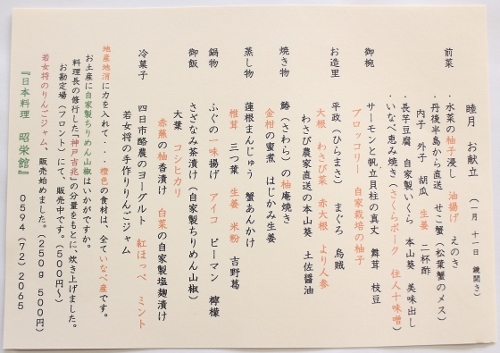 睦月　お献立　（一月　十一日　鏡開き）
前菜　・水菜の柚子浸し　油揚げ　えのき
・丹後半島から直送　せこ蟹（松葉蟹のメス）
内子　外子　胡瓜　生姜　二杯酢
・長芋豆腐　自家製いくら　本山葵　美味出し
・いなべ恵み焼き（さくらポーク　住人十味噌）
御椀　サーモンと帆立貝柱の真丈　舞茸　枝豆
ブロッコリー　自家栽培の柚子
お造里　平政（ひらまさ）　まぐろ　烏賊
大根　わさび菜　赤大根　より人参
わさび農家直送の本山葵　土佐醤油
焼き物　鰆（さわら）の柚庵焼き
金柑の蜜煮　はじかみ生姜
蒸し物　蓮根まんじゅう　蟹あんかけ
椎茸　三つ葉　生姜　米粉　吉野葛
鍋物　ふぐの一味揚げ　アイコ　ピーマン　檸檬
御飯　さざなみ茶漬け（自家製ちりめん山椒）
大葉　コシヒカリ
赤蕪の柚香漬け　白菜の自家製塩麹漬け
冷菓子　四日市酪農のヨーグルト　紅ほっぺ　ミント
若女将の手作りりんごジャム
地産地消に力を入れて・・橙色の食材は、全ていなべ産です。
お土産に自家製ちりめん山椒はいかがですか。
料理長の修行した「神戸吉兆」の分量をもとに、炊き上げました。
お勘定場（フロント）にて、販売中です。（５００円～）
若女将のりんごジャム、販売始めました。（２５０ｇ　５００円）
『日本料理　昭栄館』　０５９４（７２）２０６５